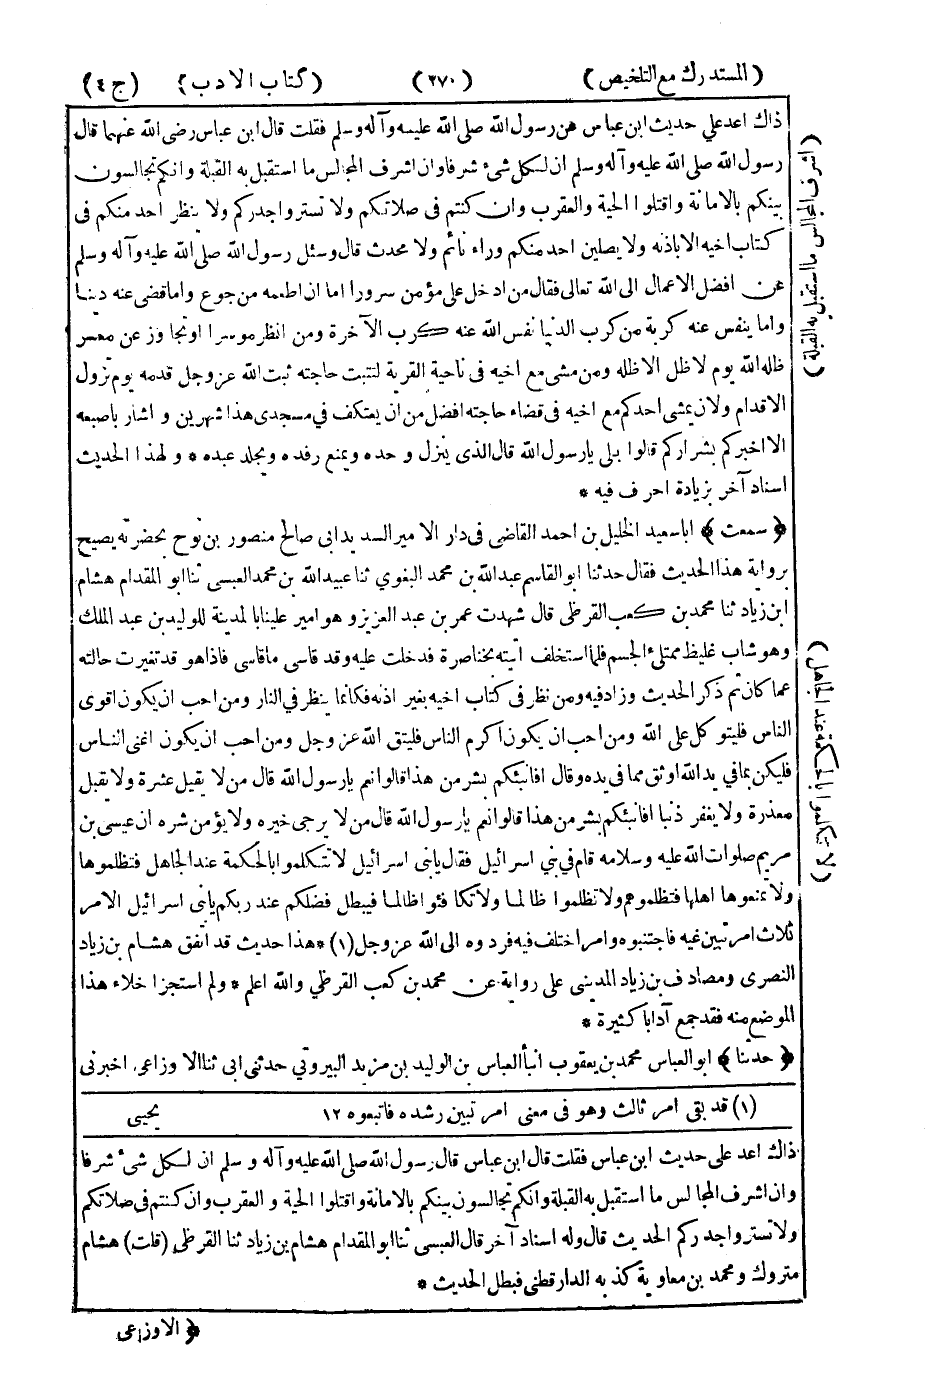 (المستدرك مع التلخيص) (٢٧٠) (كتاب الادب) (ج ٤)
ذاك اعد علي حديث ابن عباس عن رسول الله صلى الله عليه وآله وسلم فقلت قال ابن عباس رضى الله عنهما قال
رسول الله صلى الله عليه وآله وسلم ان لكل شئ شرفا وان اشرف المجالس ما استقبل به القبلة وانكم تجالسون
بينكم بالامانة واقتلوا الحية والعقرب وان كنتم فى صلاتكم ولا تستر واجدركم ولا ينظر احد منكم فى
كتاب اخيه الا باذنه ولا يصلين احد منكم وراء نائم ولا محدث قال وسئل رسول الله صلى الله عليه وآله وسلم
عن افضل الاعمال الى الله تعالى فقال من ادخل على مؤمن سرورا اما ان اطعمه من جوع واما قضى عنه دينا
واما ينفس عنه كربة من كرب الدنيا نفس الله عنه كرب الآخرة ومن انظر موسرا اوتجاوز عن معسر
ظله الله يوم لا ظل الا ظله ومن مشى مع اخيه فى ناحية القرية لتثبت حاجته ثبت الله عز وجل قدمه يوم تزول
الاقدام ولان يمشى احدكم مع اخيه فى قضاء حاجته افضل من ان يعتكف في مسجدى هذا شهرين و اشار باصبعه
الا اخبركم بشراركم قالوا بلى يارسول الله قال الذى ينزل وحده ويمنع رفده ويجلد عبده * ولهذا الحديث
اسناد آخر بزيادة احرف فيه *
﴿ سمعت ﴾ اباسعيد الخليل بن احمد القاضى فى دار الامير السديد ابى صالح منصور بن نوح بحضرته يصيح
برواية هذا الحديث فقال حدثنا ابو القاسم عبدالله بن محمد البغوي ثنا عبيدالله بن محمد العبسى ثنا ابو المقدام هشام
ابن زياد ثنا محمد بن كعب القرظى قال شهدت عمر بن عبد العزيز و هو امير علينا بالمدينة للوليد بن عبد الملك
وهو شاب غليظ ممتلئ الجسم فلما استخلف اتيته بخناصرة فدخلت عليه وقد قاسى ماقاسى فاذا هو قد تغيرت حالته
عما كان ثم ذكر الحديث وزاد فيه ومن نظر فى كتاب اخيه بغير اذنه فكانما ينظر في النار ومن احب ان يكون اقوى
الناس فليتوكل على الله ومن احب ان يكون اكرم الناس فليتق الله عز وجل ومن احب ان يكون اغنى الناس
فليكن بما في يد الله اوثق مما فى يده وقال افانبئكم بشر من هذا قالوا نعم يارسول الله قال من لا يقيل عثرة ولا يقبل
معذرة ولا يغفر ذنبا افانبئكم بشر من هذا قالوا نعم يارسول الله قال من لا يرجى خيره ولا يؤمن شره ان عيسى بن
مريم صلوات الله عليه وسلامه قام في بني اسرائيل فقال يابنى اسرائيل لا تتكلموا بالحكمة عند الجاهل فتظلموها
ولا تمنعوها اهلها فتظلموهم ولا تظلموا ظالما ولا تكافئوا ظالما فيبطل فضلكم عند ربكم يابنى اسرائيل الامر
ثلاث امر تبين غيه فاجتنبوه وامر اختلف فيه فردوه الى الله عز وجل (١) * هذا حديث قد اتفق هشام بن زياد
النصرى ومصادف بن زياد المديني على رواية عن محمد بن كعب القرظي والله اعلم * ولم استجز اخلاء هذا
الموضع منه فقد جمع آدابا كثيرة *
﴿ حدثنا ﴾ ابو العباس محمد بن يعقوب انبأ العباس بن الوليد بن مزيد البيروتي حدثنى ابى ثنا الاوزاعى اخبرنى
(١) قد بقى امر ثالث وهو فى معنى امر تبين رشده فاتبعوه ١٢
يحيى
ذاك اعد على حديث ابن عباس فقلت قال ابن عباس قال رسول الله صلى الله عليه وآله و سلم ان لكل شئ شرفا
وان اشرف المجالس ما استقبل به القبلة وانكم تجالسون بينكم بالامانة واقتلوا الحية و العقرب وان كنتم فى صلاتكم
ولا تستر واجدركم الحديث قال وله اسناد آخر قال العبسى ثنا ابو المقدام هشام بن زياد ثنا القرظى (قلت) هشام
متروك و محمد بن معاوية كذبه الدارقطنى فبطل الحديث *
﴿ الاوزاعى
(اشرف المجالس ما استقبل به القبلة)
(لا تتكلموا بالحكمة عند الجاهل)